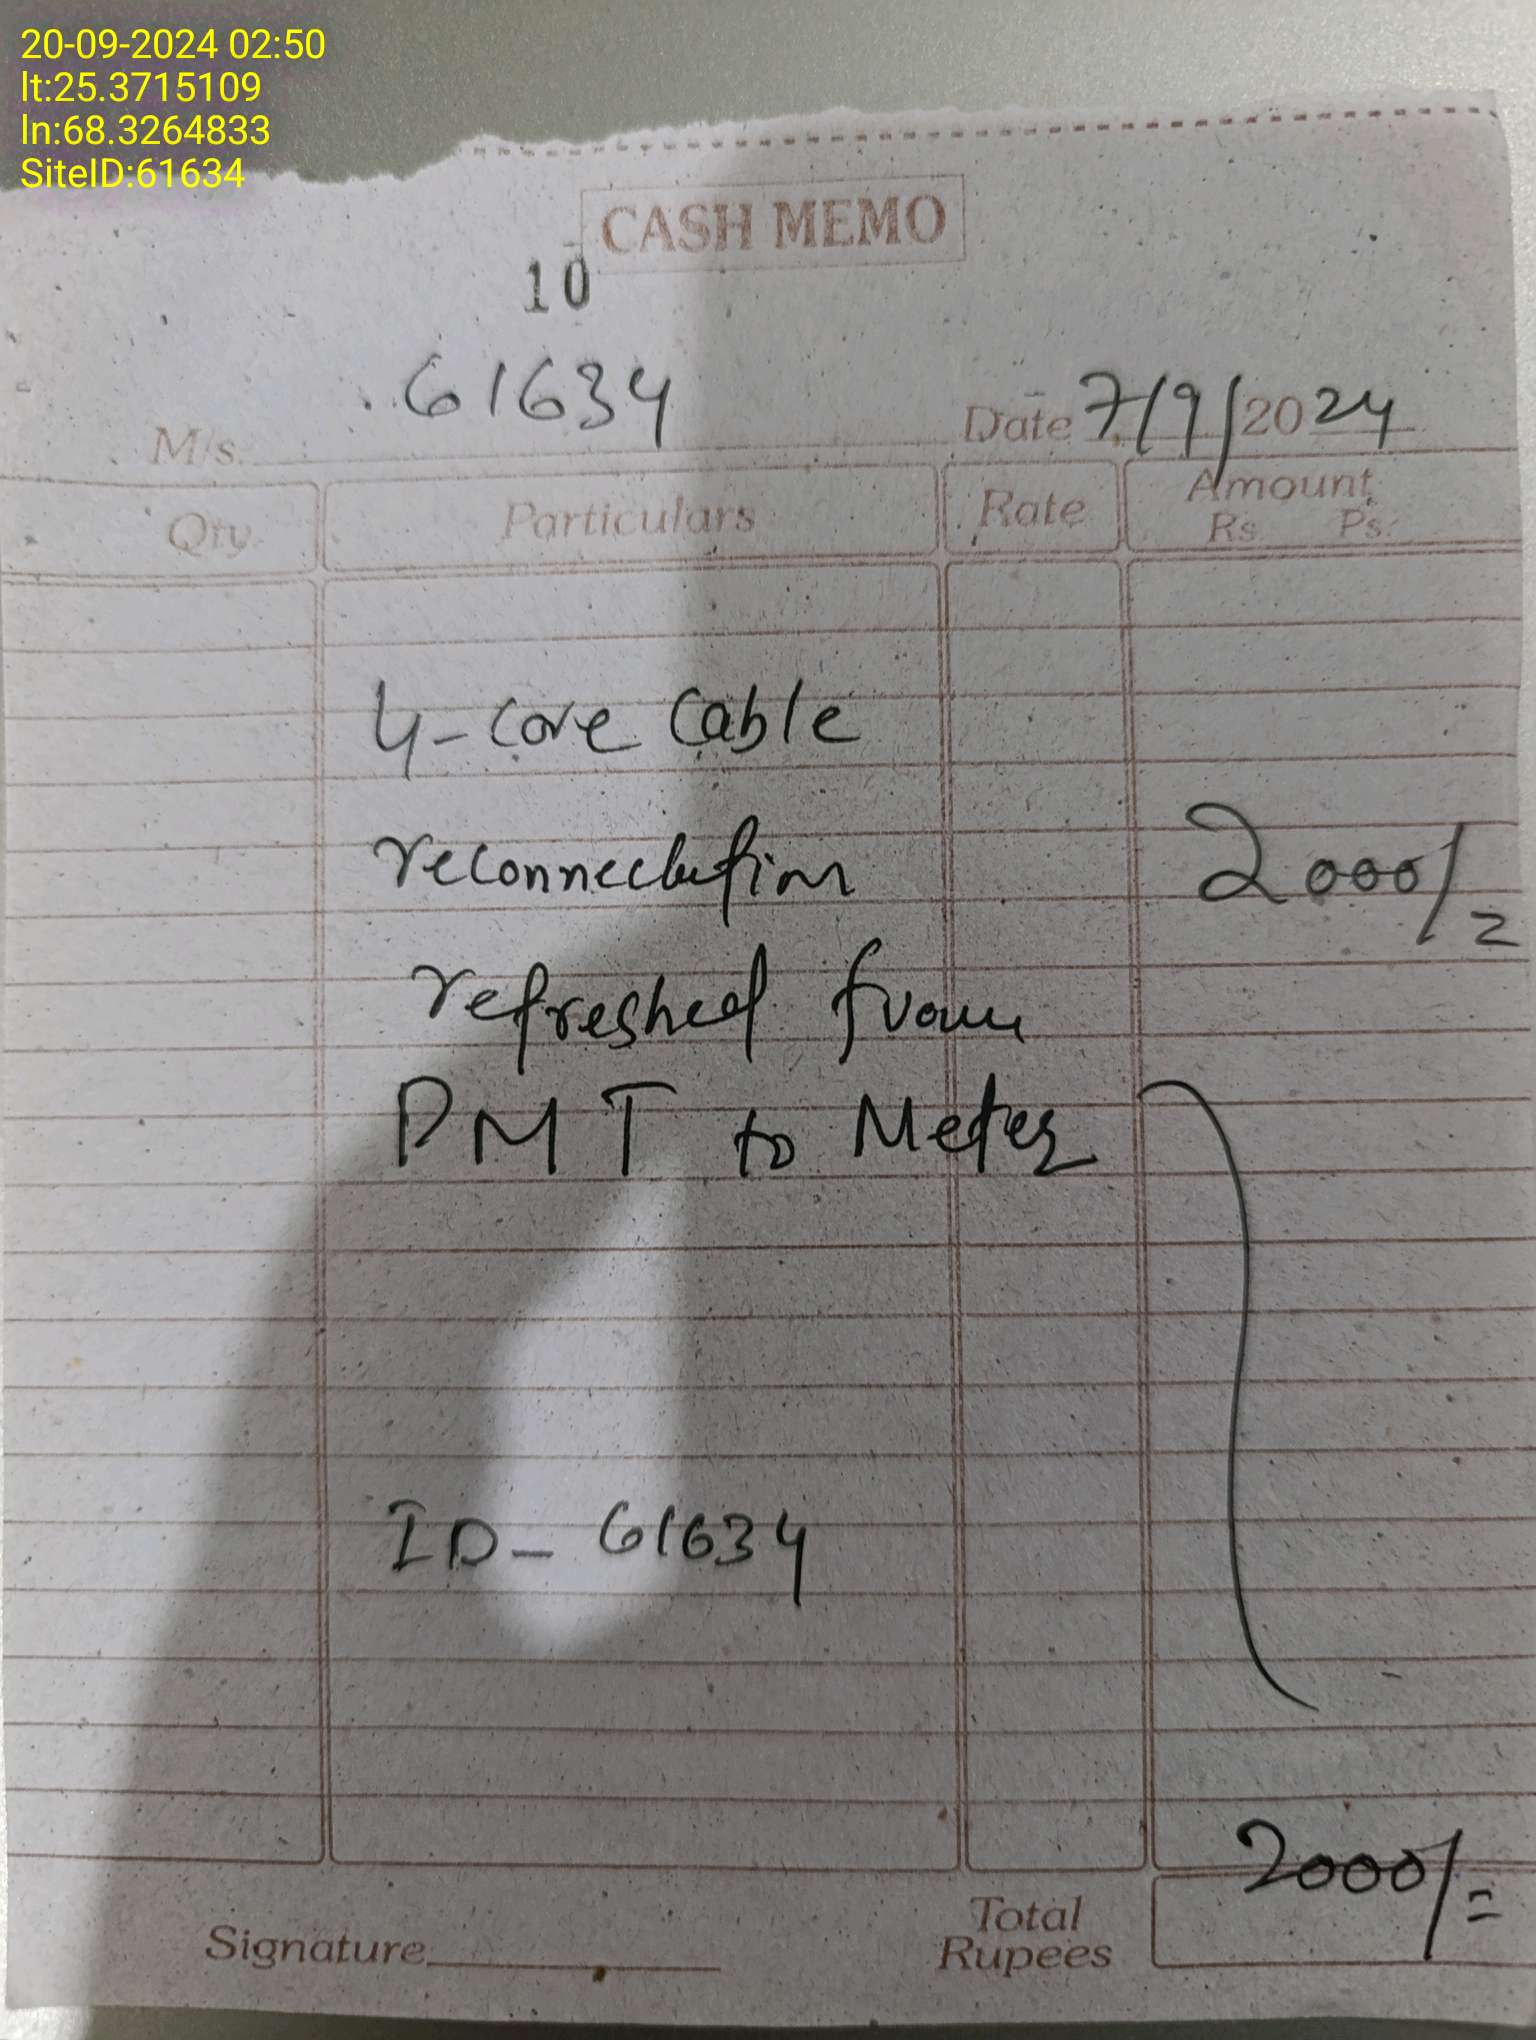 20-09-2024 02:50
lt:25.3715109
ln:68.3264833
SiteID:61634
CASH MEMO
10
M/s. 61634 Date 7/9/2024
Qty. Particulars Rate Amount
Rs. Ps.
4-core Cable
reconnectufion 2000/=
refreshed from
PMT to Meter
ID- 61634
2000/=
Signature Total
Rupees